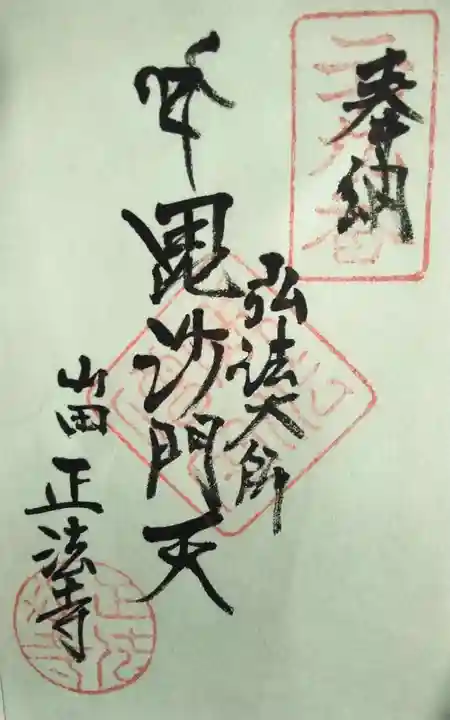 奉納
弘法大師
毘沙門天
山田 正法寺